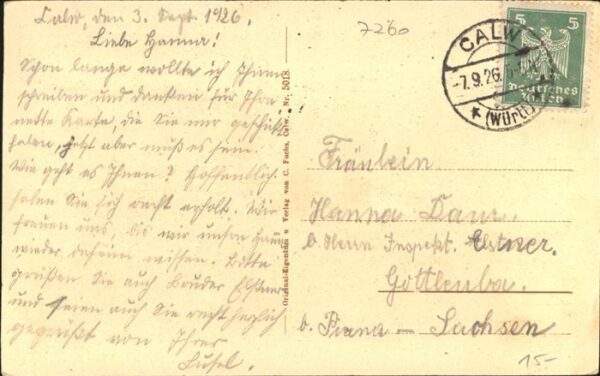 Calw, den 3. Sept. 1926.
Liebe Hanna!
Schon lange wollte ich Ihnen
schreiben und danken für Ihre
nette Karte, die Sie mir geschickt
haben, jetzt aber muß es sein.
Wie geht es Ihnen? Hoffentlich
haben Sie sich recht erholt. Wir
freuen uns, bis wir unsre Hanna
wieder daheim wissen. Bitte
grüßen Sie auch Elstner
und seien auch Sie recht herzlich
gegrüßt von Ihrer
Original-Eigentum u Verlag von C. Fuchs, Calw. Nr. 5018.
7260
CALW
-7.9.26.
(Württ)
5 5
Deutsches
Reich
Fräulein
Hanna
b. Herrn Inspekt. Elstner.
Gottleuba.
b. Pirna - Sachsen
15-